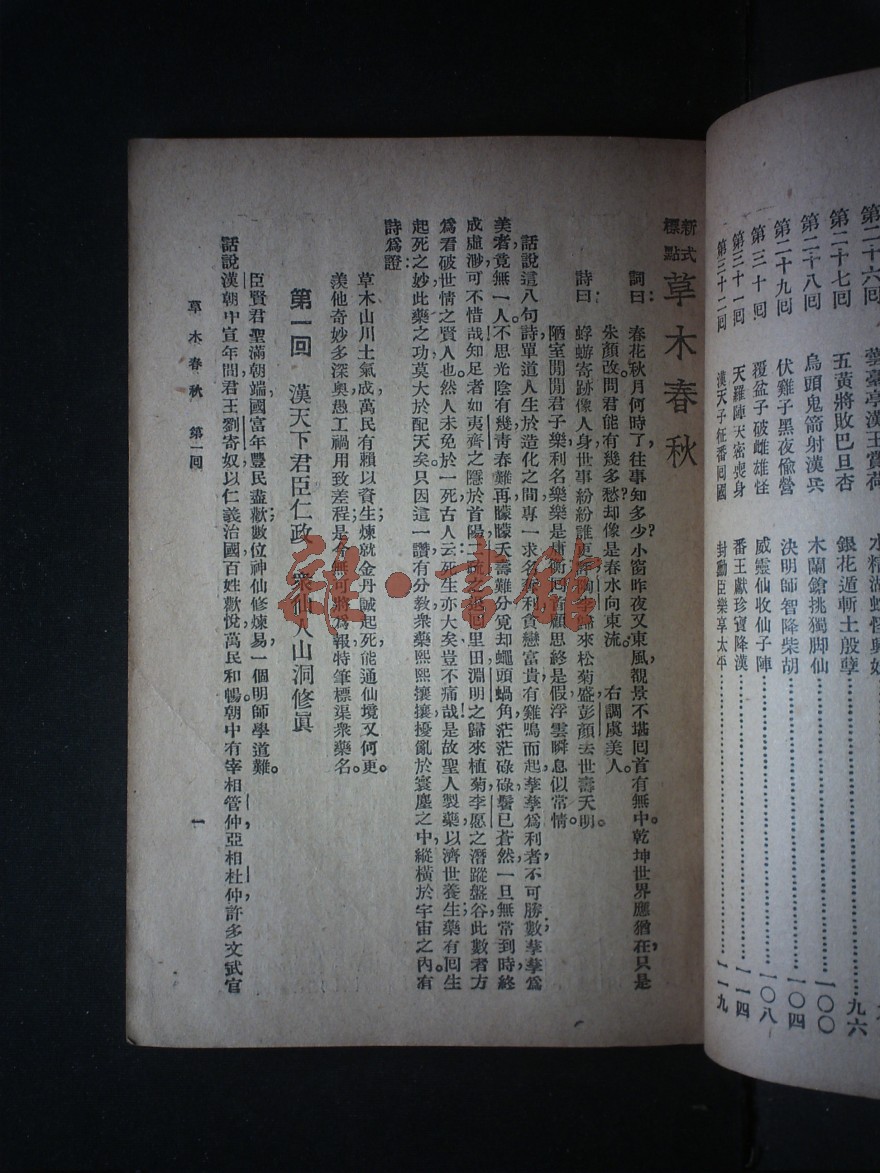 第二十六回 雲臺亭漢王賞荷
第二十七回 五黃將敗巴旦杏 銀花遁斬土殷孽……九六
第二十八回 烏頭鬼箭射漢兵 木蘭鎗挑獨脚仙……一〇〇
第二十九回 伏雞子黑夜偸營 決明師智降柴胡……一〇四
第三十回 覆盆子破雌雄怪 威靈仙收仙子陣……一〇八
第三十一回 天羅陣天密喪身 番王獻珍寶降漢……一一四
第三十二回 漢天子征番回國 封勳臣樂享太平……一一九
新式標點 草木春秋
詞曰：春花秋月何時了，往事知多少？小窗昨夜又東風，觀景不堪回首有無中。乾坤世界應猶在，只是
朱顏改。問君能有幾多愁？却像是春水向東流。 右調虞美人。
詩曰：蜉蝣寄跡像人身，世事紛紛誰 歸來松菊盛，彭顏去世壽夭明。
陋室閒閒君子樂，利名樂樂是庸 顧思終是假，浮雲瞬息似常情。
話說這八句詩，單道人生於造化之間，專一求名奪利，貪戀富貴，有雞鳴而起，孳孳爲利者，不可勝數，孳孳爲
美者，竟無一人。不思光陰有幾，靑春難再，矇矇夭壽難分，寬却蠅頭蝸角，茫茫碌碌，鬢已蒼然，一旦無常到時，終
成虛渺，可不惜哉！知足者如夷齊之隱於首陽，二疏之 回里田，淵明之歸來植菊，李愿之潛蹤盤谷，此數者，方
爲看破世情之賢人也。然人未免於一死，古人云：死生亦大矣，豈不痛哉！是故聖人製藥以濟世養生，藥有回生
起死之妙，此藥之功，莫大於配天矣。只因這一讚，有分敎衆藥熙熙攘攘，擾亂於寰塵之中，縱橫於宇宙之內。有
詩爲證：
草木山川土氣成，萬民有賴以資生；煉就金丹誠起死，能通仙境又何更。
羨他奇妙多深奧，愚工禍用致差程；是今無可將爲報，特筆標渠衆藥名。
第一回 漢天下君臣仁政 衆仙人山洞修眞
臣賢君聖滿朝端，國富年豐民盡歡；數位神仙修煉易，一個明師學道難。
話說漢朝中宣年間，君王劉寄奴，以仁義治國，百姓歡悅，萬民和暢。朝中有宰相管仲，亞相杜仲，許多文武官
草木春秋 第一回 一
雜·書館